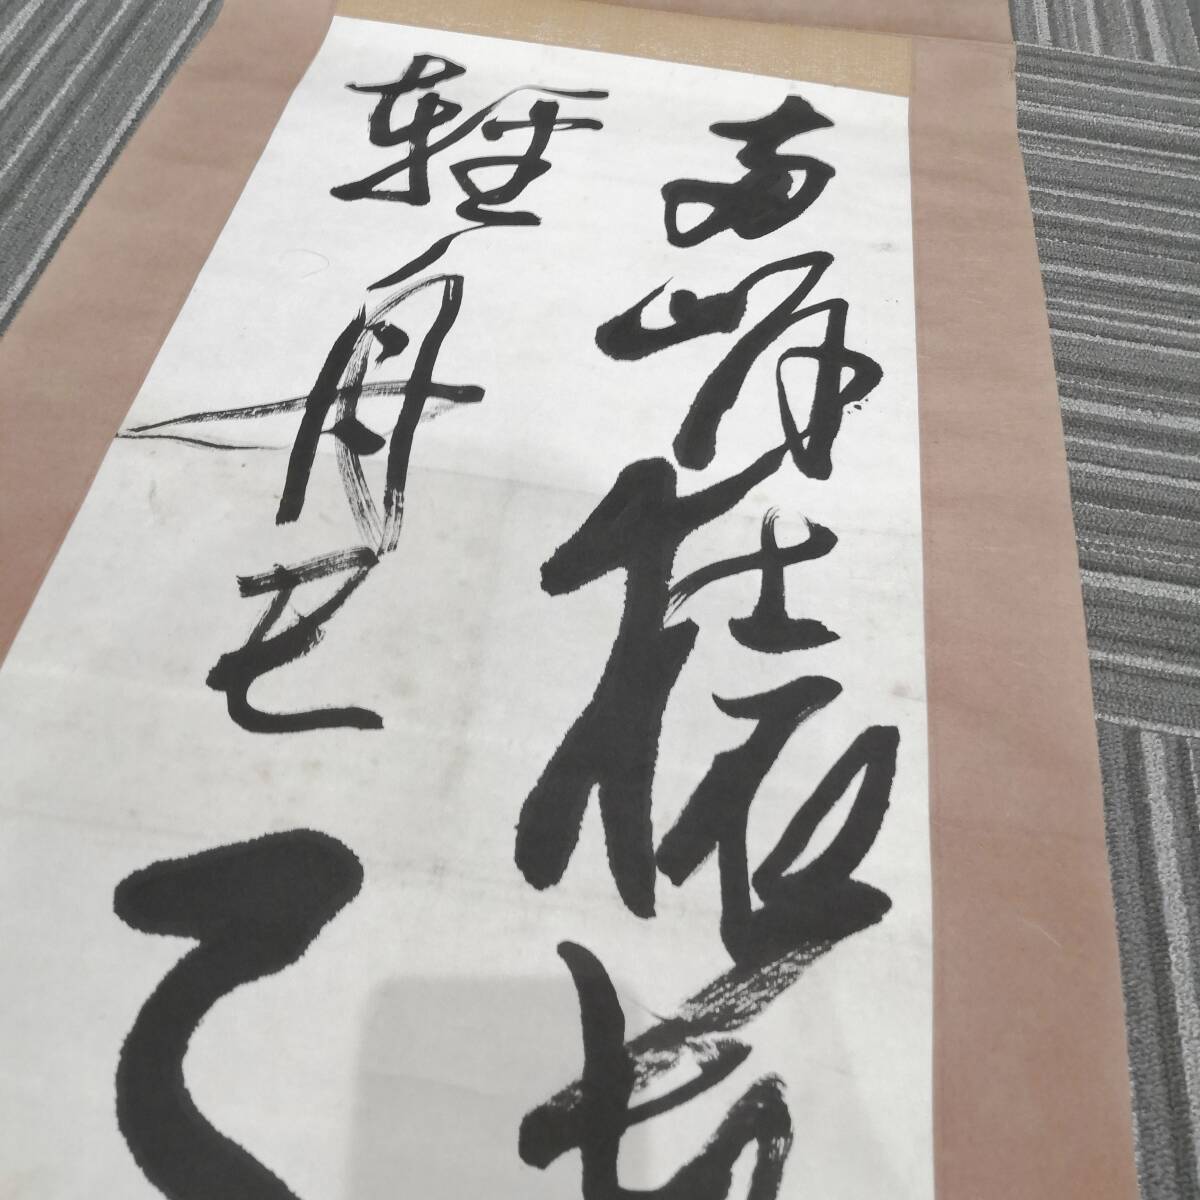 両岸猿
軽舟已